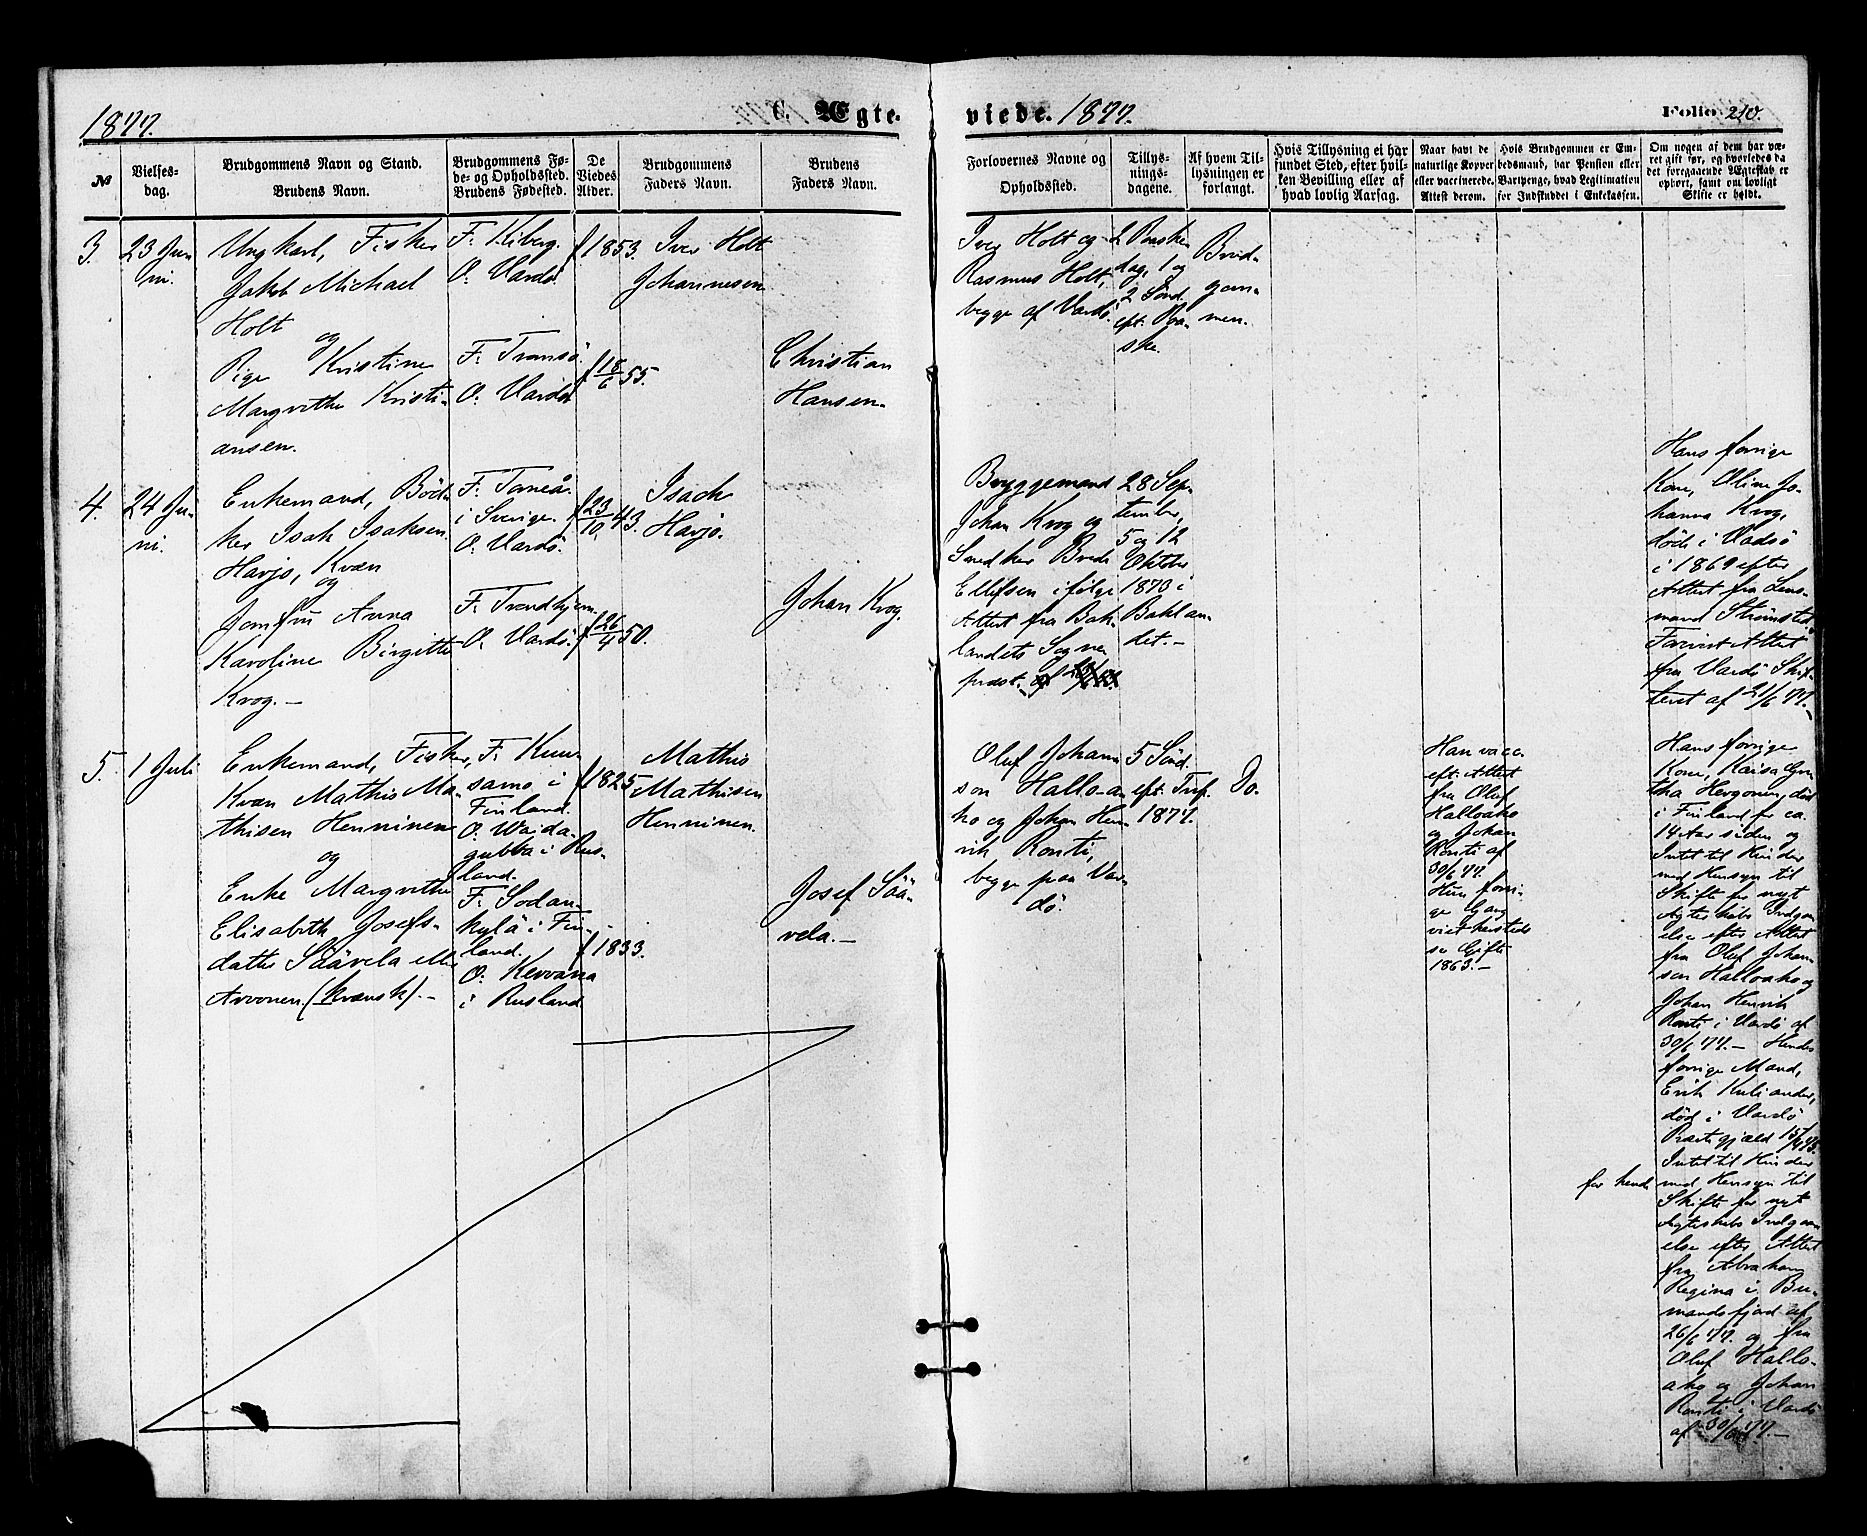 1877.
C. Ægte-
viede. 1877.
Folio 210.
№
Vielses-
dag.
Brudgommens Navn og Stand.
Brudens Navn.
Brudgommens Fø-
de- og Opholdssted.
Brudens Fødested.
De
Viedes
Alder.
Brudgommens
Faders Navn.
Brudens
Faders Navn.
Forlovernes Navne og
Opholdssted.
Tillys-
nings-
dagene.
Af hvem Til-
lysningen er
forlangt.
Hvis Tillysning ei har
fundet Sted, efter hvil-
ken Bevilling eller af
hvad lovlig Aarsag.
Naar havt de
naturlige Kopper
eller vaccinerede.
Attest derom.
Hvis Brudgommen er Em-
bedsmand, har Pension eller
Vartpenge, hvad Legitimation
for Indskuddet i Enkekassen.
Om nogen af dem har væ-
ret gift før, og hvorledes da
det foregaaende Ægteskab er
ophørt, samt om lovligt
Skifte er holdt.
3.
23 Jun
ni.
Ungkarl, Fisker
Jakob Michael
Holt
og
Pige Kristine
Margrethe Kristi-
ansen.
F. Kiberg.
O. Vardö
F. Tromsö.
O. Vardö
f 1853.
f 18/6 55.
Iver Holt
Johannesen
Christian
Hansen.
Iver Holt og
Rasmus Holt,
begge af Vardö.
2 Paaske
dag, 1 og
2 Sönd.
eft. Paa-
ske.
Brud-
gom-
men.
4.
24 Ju-
ni.
Enkemand, Böd-
ker Isak Isaksen
Harjo, Kvæn
og
Jomfru Anna
Karoline Birgitte
Krog.-
F. Torneå
i Sverige.
O. Vardö.
F. Trondhjem
O. Vardö.
f 23/10 43.
f 26/4 50.
Isach
Harjo.
Johan Krog.
Bryggemand
Johan Krog og
Snedker Brede
Ellefsen ifölge
Attest fra Bak-
landets Sogne
præst.
28 Sep-
tember,
5 og 12
Oktober
1873 i
Baklan-
det.-
Hans forrige
Kone, Oline Jo-
hanna Krog,
döde i Vadsö
i 1869 efter
Attest fra Lens-
mand Strömsted.
Forevist Attest
fra Vardö Skif-
teret af 21/6 77.-
5.
1 Juli
Enkemand, Fisker,
Kvæn Mathis Ma-
thisen Henninen
og
Enke Margrethe
Elisabeth Josefs-
datter Säävela eller
Arvonen (Kvænsk).-
F. Kuu-
samo i
Finland.
O. Waida-
gubba i Rus-
land.
F. Sodan-
kylä i Fin-
land.
O. Kervana
i Rusland
f 1825
f 1833.
Mathis
Mathisen
Henninen.
Josef Sää-
vela.-
Oluf Johan
son Halloa-
ho og Johan Hen-
rik Ronti,
begge paa Var-
dö.
5 Sönd.
eft. Trf.
1877.
Do.
Han vacc.
eft. Attest
fra Oluf
Halloaho
og Johan
Ronti af
30/6 77.
Hun forri-
ge Gang
viet
Gifte
1863.-
Hans forrige
Kone, Kaisa Gre
tha Hergonen, död
i Finland for ca.
14 Aar siden og
Intet til Hinder
med Hensyn til
Skifte for nyt
Ægteskabs Indgaa-
else efter Attest
fra Oluf Johan
son Halloaho og
Johan Henrik
Ronti i Vardö af
30/6 77.- Hendes
forrige Mand,
Erik Kuliander,
död i Vardö
Præstegjæld 15/4 73.
Intet til Hinder
for hende
med Hensyn til
Skifte for nyt
Ægteskabs Indgaa
else efter Attest
fra Abraham
Regina i Bu-
mandsfjord af
26/6 77. og fra
Oluf Hallo-
aho og Johan
Ronti i Vardö
af 30/6 77.-